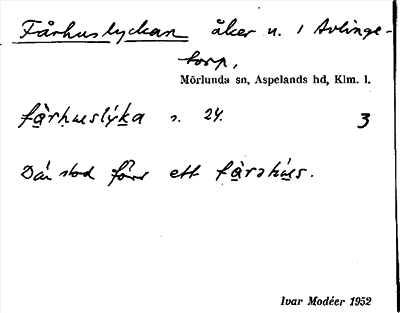 Fårhuslyckan åker n. 1 Avlinge-
torp,
Mörlunda sn, Aspelands hd, Klm. l.
fàrhuslýka s. 24. 3
Där stod förr ett fàrəhús.
Ivar Modéer 1952